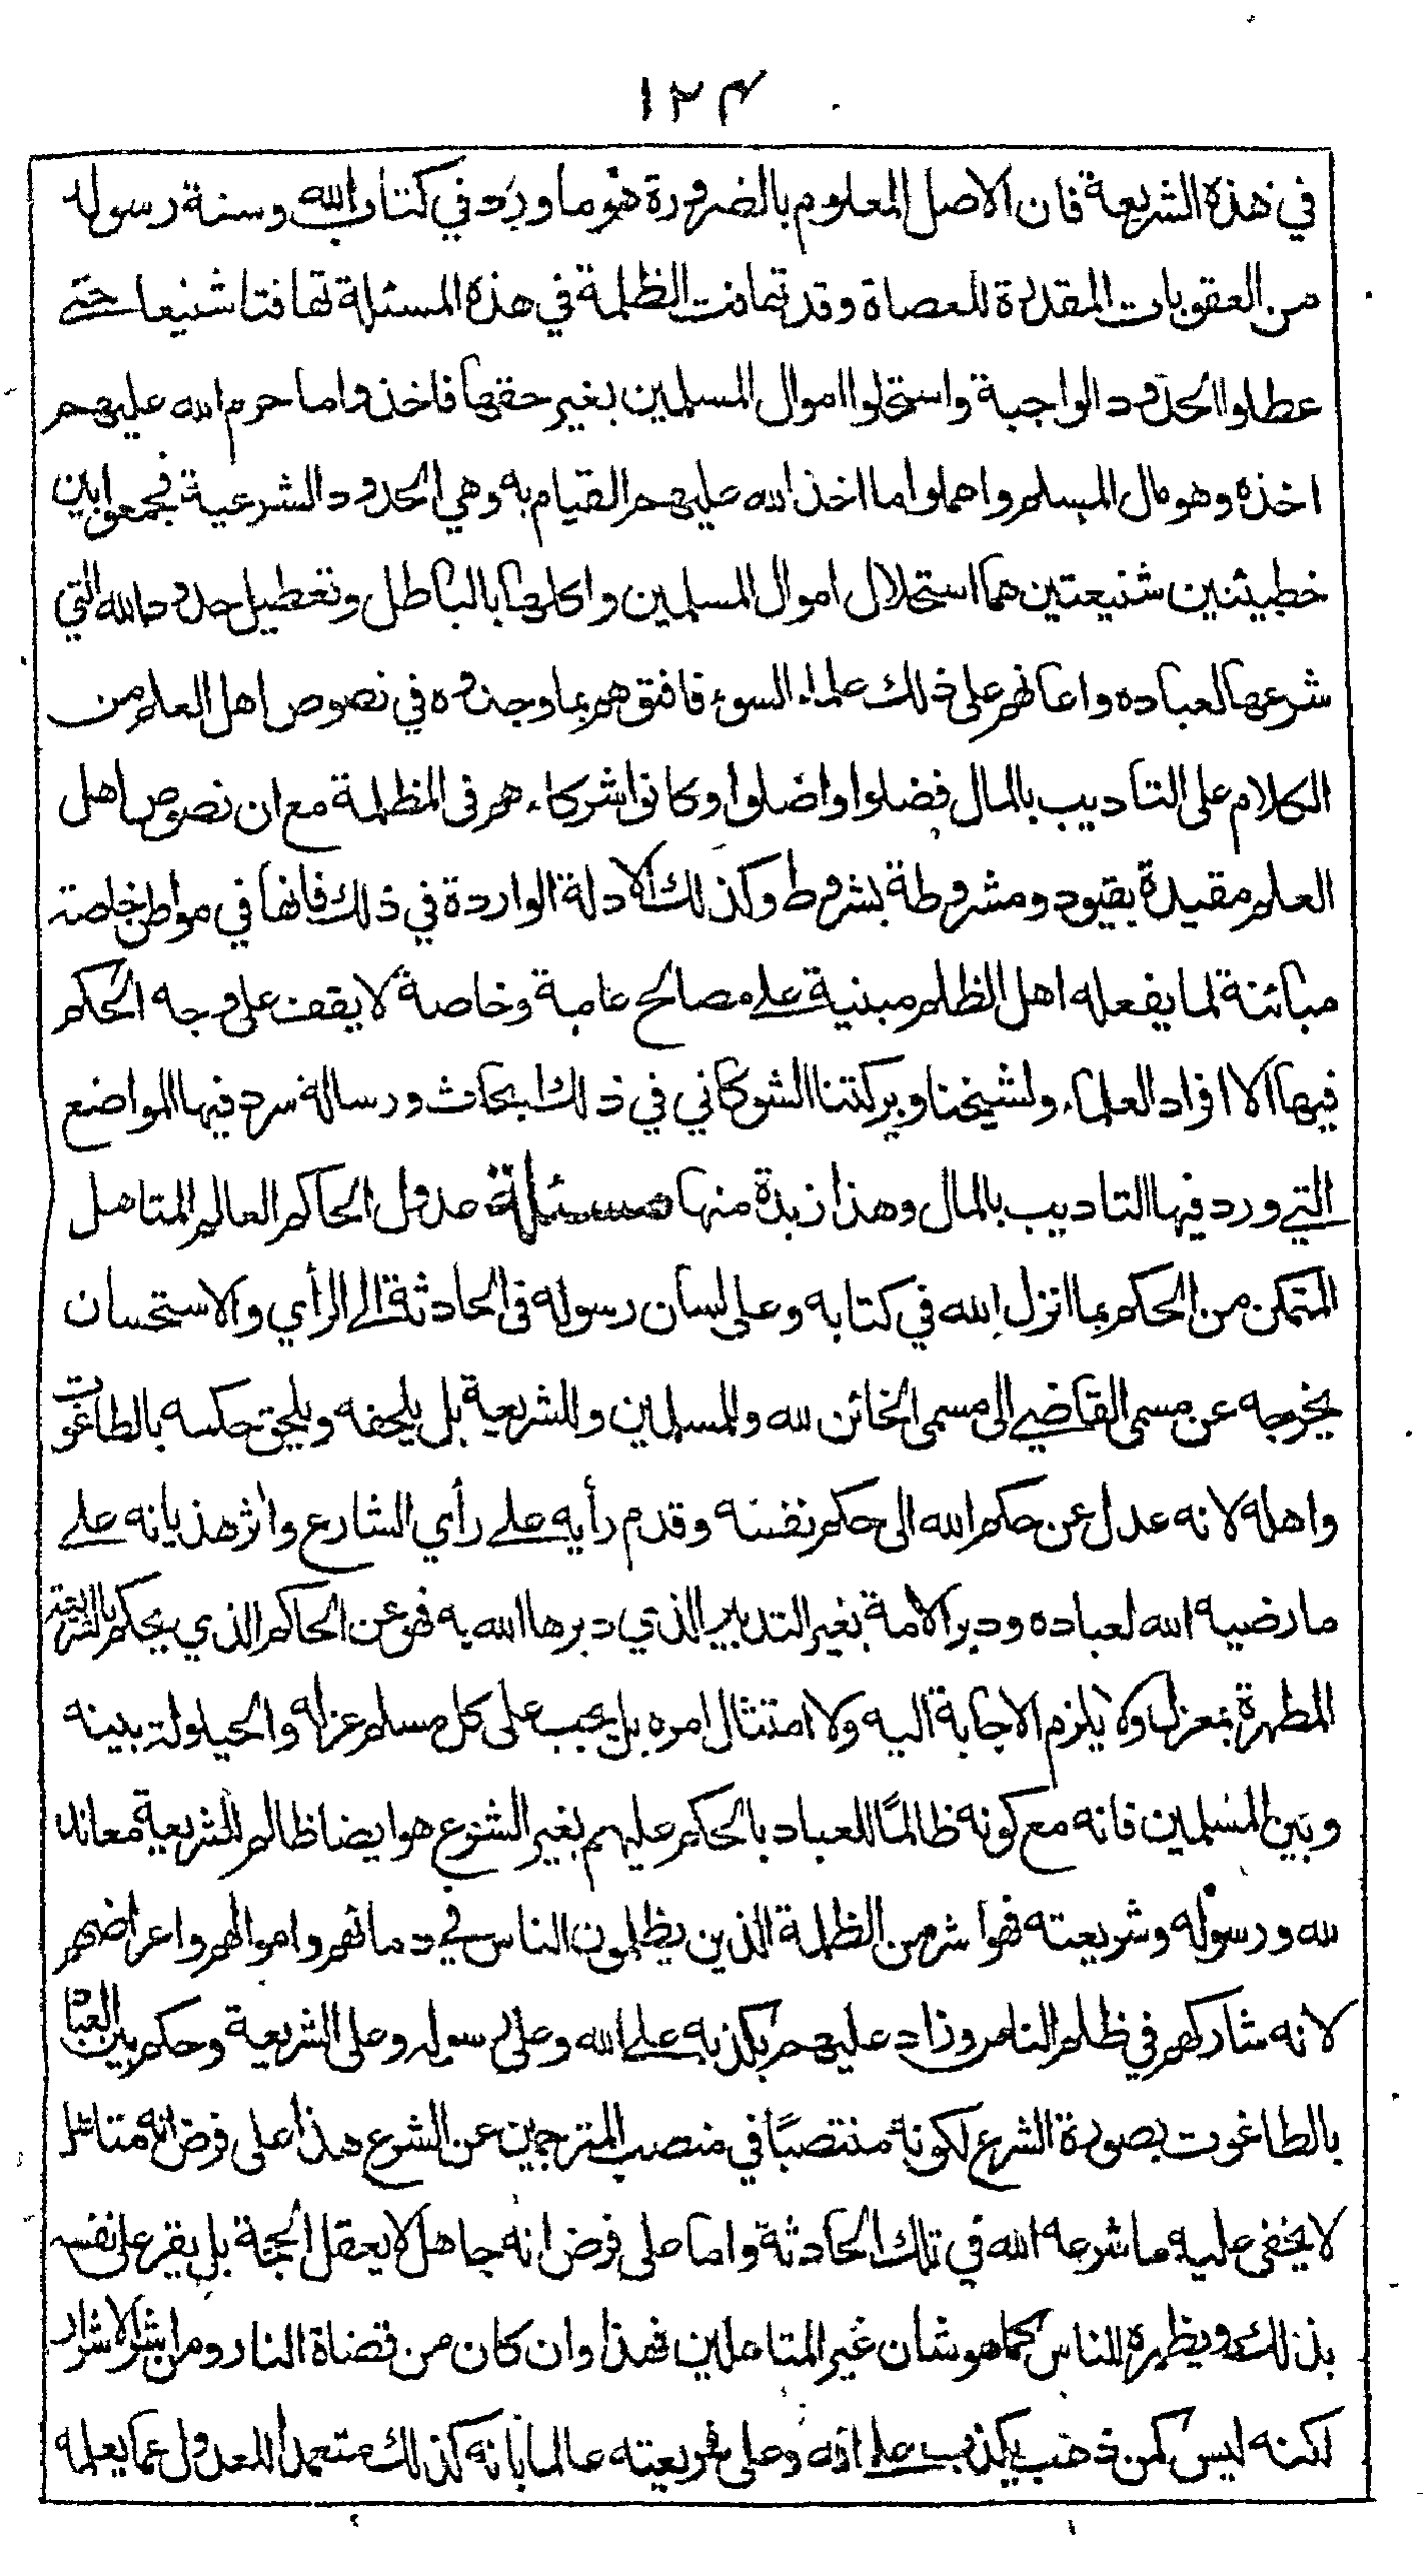 ١٢٤
في هذه الشريعة فان الاصل المعلوم بالضرورة هو ما ورد في كتاب الله وسنة رسوله
من العقوبات المقدرة للعصاة وقد تهافت الظلمة في هذه المسئلة تهافتا شنيعا حتى
عطلوا الحدود الواجبة واستحلوا اموال المسلمين بغير حقها فاخذوا ما حرم الله عليهم
اخذه وهو مال المسلم واهملوا ما اخذ الله عليهم القيام به وهي الحدود الشرعية فجمعوا بين
خطيئتين شنيعتين هما استحلال اموال المسلمين واكلها بالباطل وتعطيل حدود الله التي
شرعها لعباده واعانهم على ذلك علماء السوء فافتوهم بما وجدوه في نصوص اهل العلم من
الكلام على التاديب بالمال فضلوا واضلوا وكانوا شركاءهم في المظلمة مع ان نصوص اهل
العلم مقيدة بقيود ومشروطة بشروط وكذلك الادلة الواردة في ذلك فانها في مواطن خاصة
مبائنة لما يفعله اهل الظلم مبنية على مصالح عامة وخاصة لا يقف على وجه الحكم
فيها الا افراد العلماء ولشيخنا وبركتنا الشوكاني في ذلك ابحاث ورسالة سرد فيها المواضع
التي ورد فيها التاديب بالمال وهذا زبدة منها مسئلة عدول الحاكم العالم المتاهل
المتمكن من الحكم بما انزل الله في كتابه وعلى لسان رسوله في الحادثة الى الرأي والاستحسان
يخرجه عن مسمى القاضي الى مسمى الخائن لله والمسلمين وللشريعة بل يلحقه ويلحق حكمه بالطاغوت
واهله لانه عدل عن حكم الله الى حكم نفسه وقدم رأيه على رأي الشارع واثر هذيانه على
ما رضيه الله لعباده ودبر الامة بغير التدبير الذي دبرها الله به فهو عن الحاكم الذي يحكم بالشريعة
المطهرة بمعزل ولا يلزم الاجابة اليه ولا امتثال امره بل يجب على كل مسلم عزله والحيلولة بينه
وبين المسلمين فانه مع كونه ظالمًا للعباد بالحكم عليهم بغير الشرع هو ايضا ظالم للشريعة معاند
لله ورسوله وشريعته فهو اشر من الظلمة الذين يظلمون الناس في دمائهم واموالهم واعراضهم
لانه شاركهم في ظلم الناس وزاد عليهم بكذبه على الله وعلى رسوله وعلى الشريعة وحكم بين العباد
بالطاغوت بصورة الشرع لكونه منتصبًا في منصب المترجمين عن الشرع هذا على فرض انه متاهل
لا يخفى عليه ما شرعه الله في تلك الحادثة واما على فرض انه جاهل لا يعقل الحجة بل يقر على نفسه
بذلك ويظهره للناس كما هو شان غير المتاهلين فهذا وان كان من قضاة النار ومن اشر الاشرار
لكنه ليس كمن ذهب يكذب على الله وعلى شريعته عالما بانه كذلك متعمدا للعدول عما يعلمه